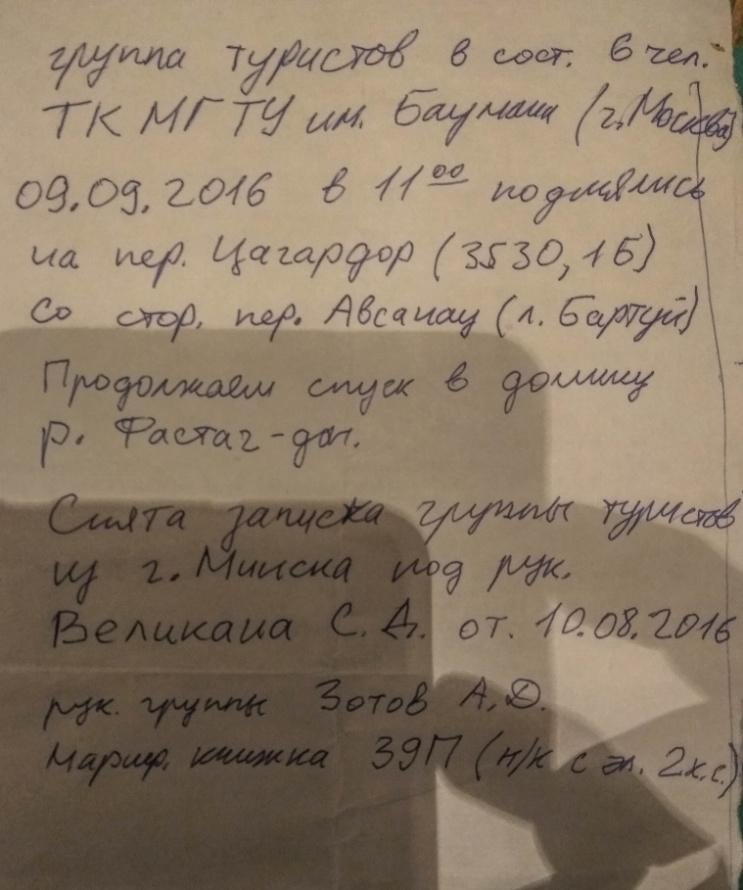 группа туристов в сост. 6 чел.
ТК МГТУ им. Баумана (г. Москва)
09.09.2016 в 11⁰⁰ поднялись
на пер. Цагардор (3530, 1Б)
со стор. пер. Авсанау (л. Бартуй)
Продолжаем спуск в долину
р. Фастаг-дон.
Снята записка группы туристов
из г. Минска под рук.
Великана С. Д. от. 10.08.2016
рук. группы Зотов А.Д.
Маршр. книжка 39П (н/к с эл. 2 к.с.)